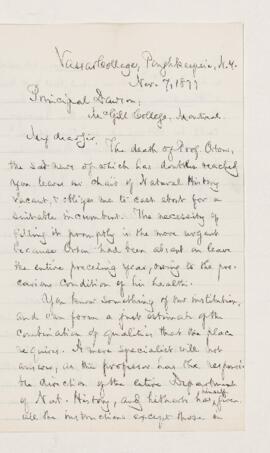 Vassar College, Poughkeepsie, N.Y.
Nov. 7, 1877
Principal Dawson,
McGill College, Montreal.
My dear Sir,
The death of Prof. Orton,
the sad news of which has doubtless reached
you leaves our chair of Natural History
vacant, & obliges me to cast about for a
suitable incumbent. The necessity of
filling it promptly is the more urgent
because Orton had been absent on leave
the entire preceding year, owing to the pre-
carious condition of his health.
You know something of our institution,
and can form a just estimate of the
combination of qualities that the place
requires. A mere specialist will not
answer, as the professor has the responsi-
ble direction of the entire Department
of Nat. History, and hitherto has, himself, given
all the instructions except those in